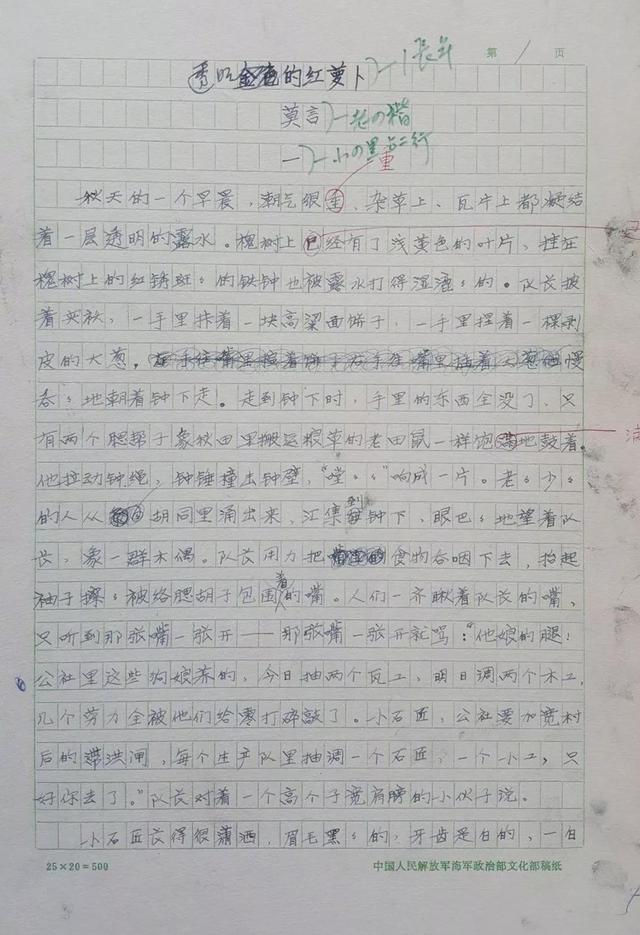 第 1 页
透明的红萝卜
莫言
一
秋天的一个早晨，潮气很重，杂草上、瓦片上都凝结
着一层透明的露水。槐树上已经有了浅黄色的叶片，挂在
槐树上的红锈斑々的铁钟也被露水打得湿漉々的。队长披
着夹袄，一手里拤着一块高粱面饼子，一手里捏着一棵剥
皮的大葱。慢
吞々地朝着钟下走。走到钟下时，手里的东西全没了，只
有两个腮帮子象秋田里搬运粮草的老田鼠一样饱满地鼓着。
他拉动钟绳，钟锤撞击钟壁，“嘡々々”响成一片。老々少々
的人从胡同里涌出来，汇集到钟下，眼巴々地望着队
长，象一群木偶。队长用力把食物吞咽下去，抬起
袖子擦々被络腮胡子包围着的嘴。人们一齐瞅着队长的嘴，
只听到那张嘴一张开——那张嘴一张开就骂：“他娘的腿！
公社里这些狗娘养的，今日抽两个瓦工，明日调两个木工，
几个劳力全被他们给零打碎敲了。小石匠，公社要加宽村
后的滞洪闸，每个生产队里抽调一个石匠，一个小工，只
好你去了。”队长对着一个高个子宽肩膀的小伙子说。
小石匠长得很潇洒，眉毛黑々的，牙齿是白的，一白
25×20=500
中国人民解放军海军政治部文化部稿纸